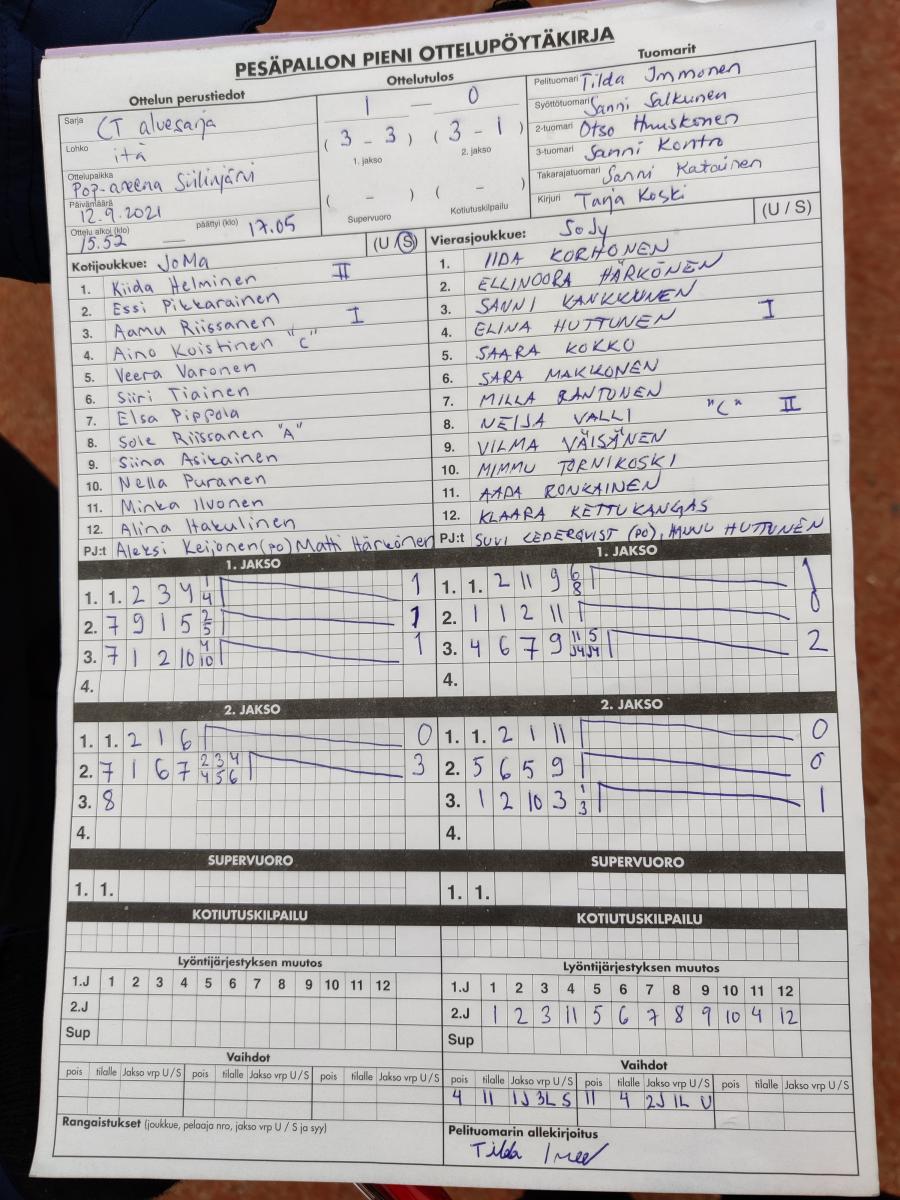 PESÄPALLON PIENI OTTELUPÖYTÄKIRJA
Ottelun perustiedot
Sarja CT aluesarja
Lohko itä
Ottelupaikka Pop-areena Siilinjärvi
Päivämäärä 12.9.2021
Ottelu alkoi (klo) 15.52 — päättyi (klo) 17.05
Ottelutulos
1 — 0
(3 - 3) (3 - 1)
1. jakso 2. jakso
( - ) ( - )
Supervuoro Kotiutuskilpailu
Tuomarit
Pelituomari Tilda Immonen
Syöttötuomari Sanni Salkunen
2-tuomari Otso Huuskonen
3-tuomari Sanni Kontro
Takarajatuomari Sanni Katainen
Kirjuri Tarja Koski
Kotijoukkue: JoMa (U/S)
1. Kiida Helminen II
2. Essi Pikkarainen
3. Aamu Riissanen I
4. Aino Koistinen "C"
5. Veera Varonen
6. Siiri Tiainen
7. Elsa Pippola
8. Sole Riissanen "A"
9. Siina Asikainen
10. Nella Puranen
11. Minka Ilvonen
12. Alina Hakulinen
PJ:t Aleksi Keijonen (PO) Matti Härkönen
Vierasjoukkue: SoJy (U/S)
1. IIDA KORHONEN
2. ELLINOORA HÄRKÖNEN
3. SANNI KANKKUNEN
4. ELINA HUTTUNEN I
5. SAARA KOKKO
6. SARA MAKKONEN
7. MILLA RANTONEN
8. NEIJA VALLI "C" II
9. VILMA VÄISÄNEN
10. MIMMU TORNIKOSKI
11. AADA RONKAINEN
12. KLAARA KETTUKANGAS
PJ:t SUVI CEDERQVIST (PO), MUNU HUTTUNEN
1. JAKSO
1. 1. 2 3 4 1/4 1
2. 7 9 1 5 2/5 1
3. 7 1 2 10 4/10 1
4.
1. JAKSO
1. 1. 2 11 9 6/8 1
2. 1 1 2 11 0
3. 4 6 7 9 11/J4 5/J4 2
4.
2. JAKSO
1. 1. 2 1 6 0
2. 7 1 6 7 2/4 3/5 4/6 3
3. 8
4.
2. JAKSO
1. 1. 2 1 11 0
2. 5 6 5 9 0
3. 1 2 10 3 1/3 1
4.
SUPERVUORO
1. 1.
SUPERVUORO
1. 1.
KOTIUTUSKILPAILU
KOTIUTUSKILPAILU
Lyöntijärjestyksen muutos
1.J 1 2 3 4 5 6 7 8 9 10 11 12
2.J
Sup
Lyöntijärjestyksen muutos
1.J 1 2 3 4 5 6 7 8 9 10 11 12
2.J 1 2 3 11 5 6 7 8 9 10 4 12
Sup
Vaihdot
pois tilalle Jakso vrp U/S pois tilalle Jakso vrp U/S pois tilalle Jakso vrp U/S
Vaihdot
pois tilalle Jakso vrp U/S pois tilalle Jakso vrp U/S pois tilalle Jakso vrp U/S
4 11 1J 3L S 11 4 2J 1L U
Rangaistukset (joukkue, pelaaja nro, jakso vrp U / S ja syy)
Pelituomarin allekirjoitus
Tilda